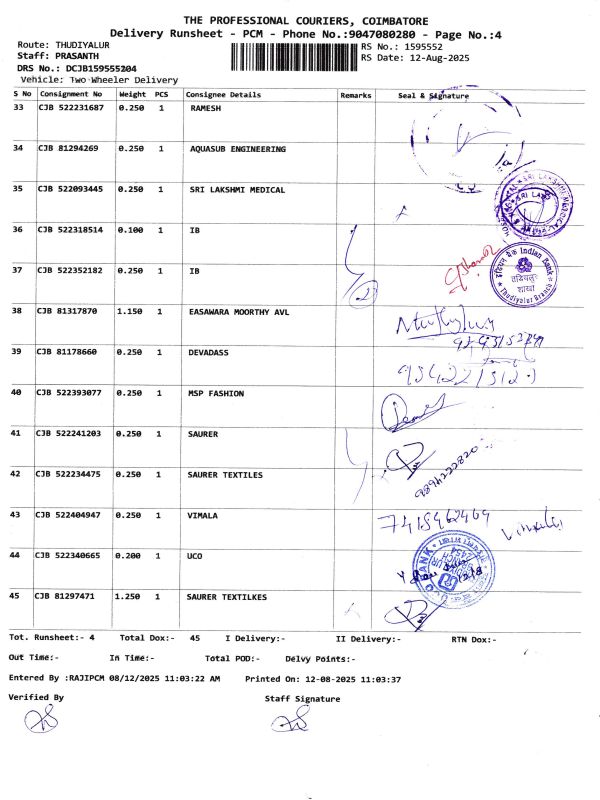 THE PROFESSIONAL COURIERS, COIMBATORE
Delivery Runsheet - PCM - Phone No.:9047080280 - Page No.:4
Route: THUDIYALUR RS No.: 1595552
Staff: PRASANTH RS Date: 12-Aug-2025
DRS No.: DCJB159555204
Vehicle: Two Wheeler Delivery
S No Consignment No Weight PCS Consignee Details Remarks Seal & Signature
33 CJB 522231687 0.250 1 RAMESH
34 CJB 81294269 0.250 1 AQUASUB ENGINEERING
35 CJB 522093445 0.250 1 SRI LAKSHMI MEDICAL
SRI LAKSHMI MEDICAL
36 CJB 522318514 0.100 1 IB
37 CJB 522352182 0.250 1 IB
2
इंडियन बैंक Indian Bank
शाखा
Thudiyalur Branch
38 CJB 81317870 1.150 1 EASAWARA MOORTHY AVL
39 CJB 81178660 0.250 1 DEVADASS
40 CJB 522393077 0.250 1 MSP FASHION
41 CJB 522241203 0.250 1 SAURER
42 CJB 522234475 0.250 1 SAURER TEXTILES
9894222820
43 CJB 522404947 0.250 1 VIMALA
7418462469
44 CJB 522340665 0.200 1 UCO
BANK
45 CJB 81297471 1.250 1 SAURER TEXTILKES
Tot. Runsheet:- 4 Total Dox:- 45 I Delivery:- II Delivery:- RTN Dox:-
Out Time:- In Time:- Total POD:- Delvy Points:-
Entered By :RAJIPCM 08/12/2025 11:03:22 AM Printed On: 12-08-2025 11:03:37
Verified By Staff Signature